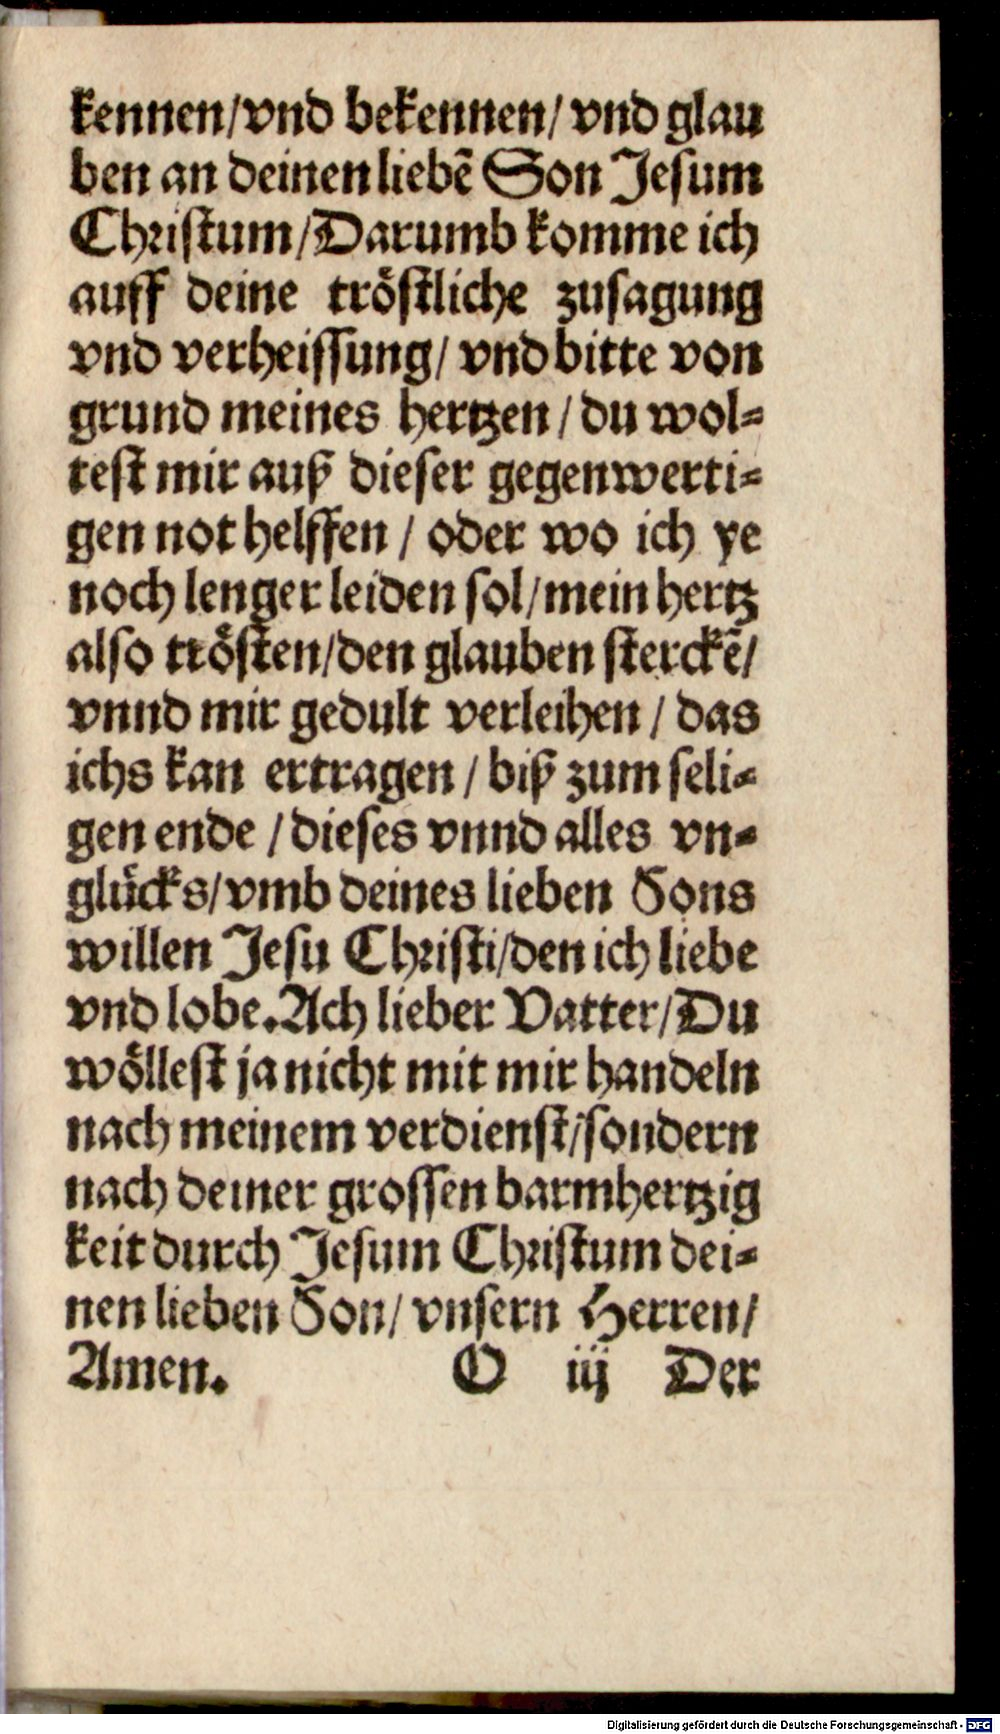 kennen/vnd bekennen/ vnd glau
ben an deinen liebē Son Jesum
Christum/Darumb komme ich
auff deine tröstliche zusagung
vnd verheissung/ vnd bitte von
grund meines hertzen / du wol-
test mir auß dieser gegenwerti-
gen not helffen / oder wo ich ye
noch lenger leiden sol/mein hertz
also trösten/den glauben sterckē/
vnnd mir gedult verleihen / das
ichs kan ertragen / biß zum seli-
gen ende / dieses vnnd alles vn-
glücks/vmb deines lieben Sons
willen Jesu Christi/den ich liebe
vnd lobe.Ach lieber Vatter/Du
wöllest ja nicht mit mir handeln
nach meinem verdienst/sondern
nach deiner grossen barmhertzig
keit durch Jesum Christum dei-
nen lieben Son/ vnsern Herren/
Amen. O iij Der
Digitalisierung gefördert durch die Deutsche Forschungsgemeinschaft - DFG